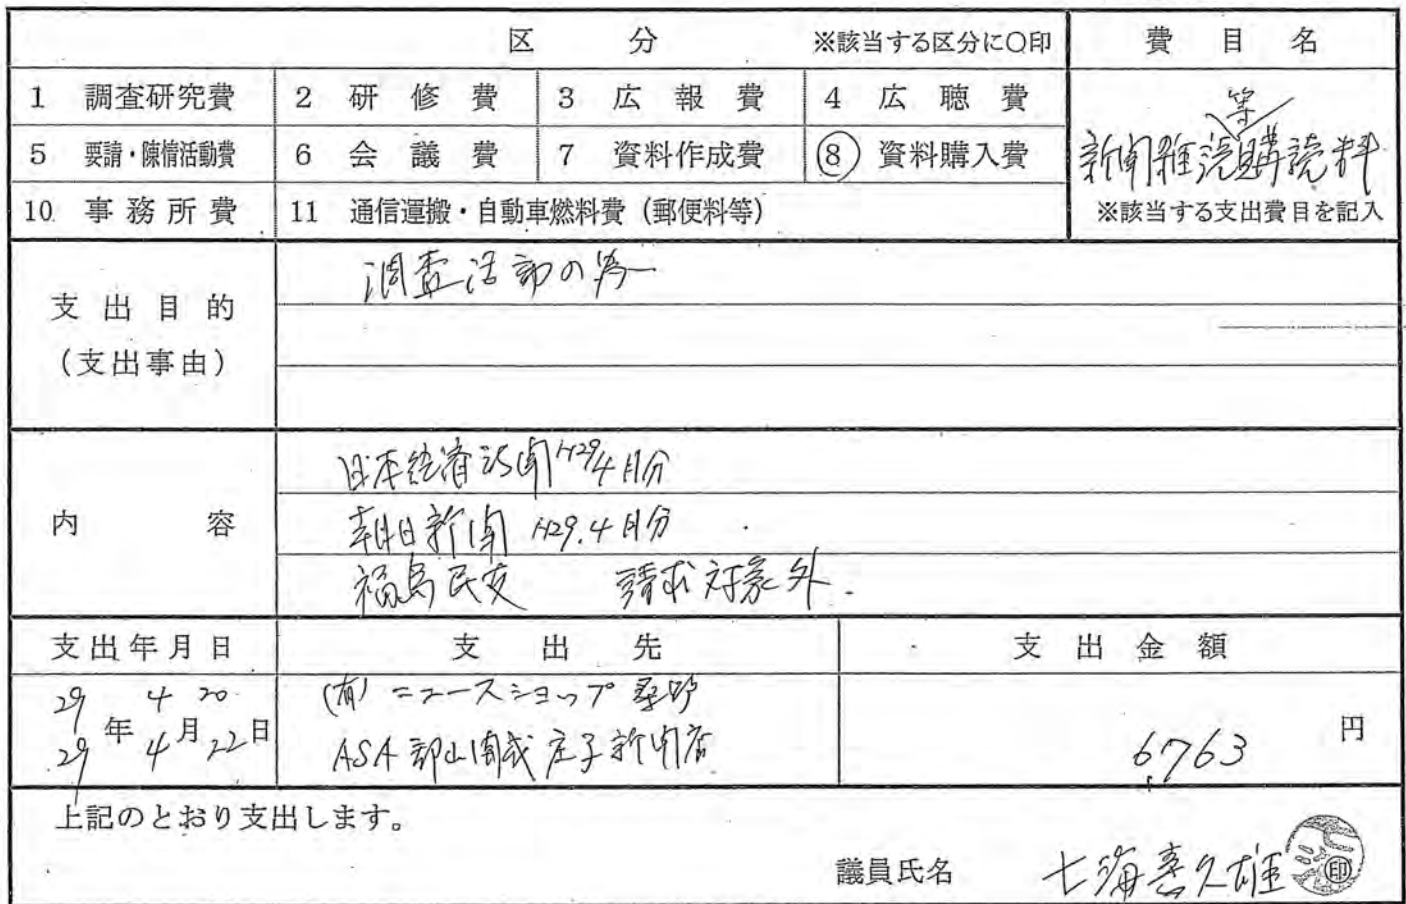 区 分 ※該当する区分に○印
費 目 名
1 調査研究費 2 研 修 費 3 広 報 費 4 広 聴 費
5 要請・陳情活動費 6 会 議 費 7 資料作成費 ⑧ 資料購入費
10 事務所費 11 通信運搬・自動車燃料費(郵便料等)
等
新聞雑誌購読料
※該当する支出費目を記入
支 出 目 的
(支出事由)
調査活動の為
内 容
日本経済新聞H29.4月分
朝日新聞 H29.4月分
福島民友 請求対象外.
支出年月日 支 出 先 支 出 金 額
29 4 20 (有)ニュースショップ桑野
29年4月22日 ASA郡山開成 庄子新聞店
6763 円
上記のとおり支出します。
議員氏名 七海喜久雄 ㊞